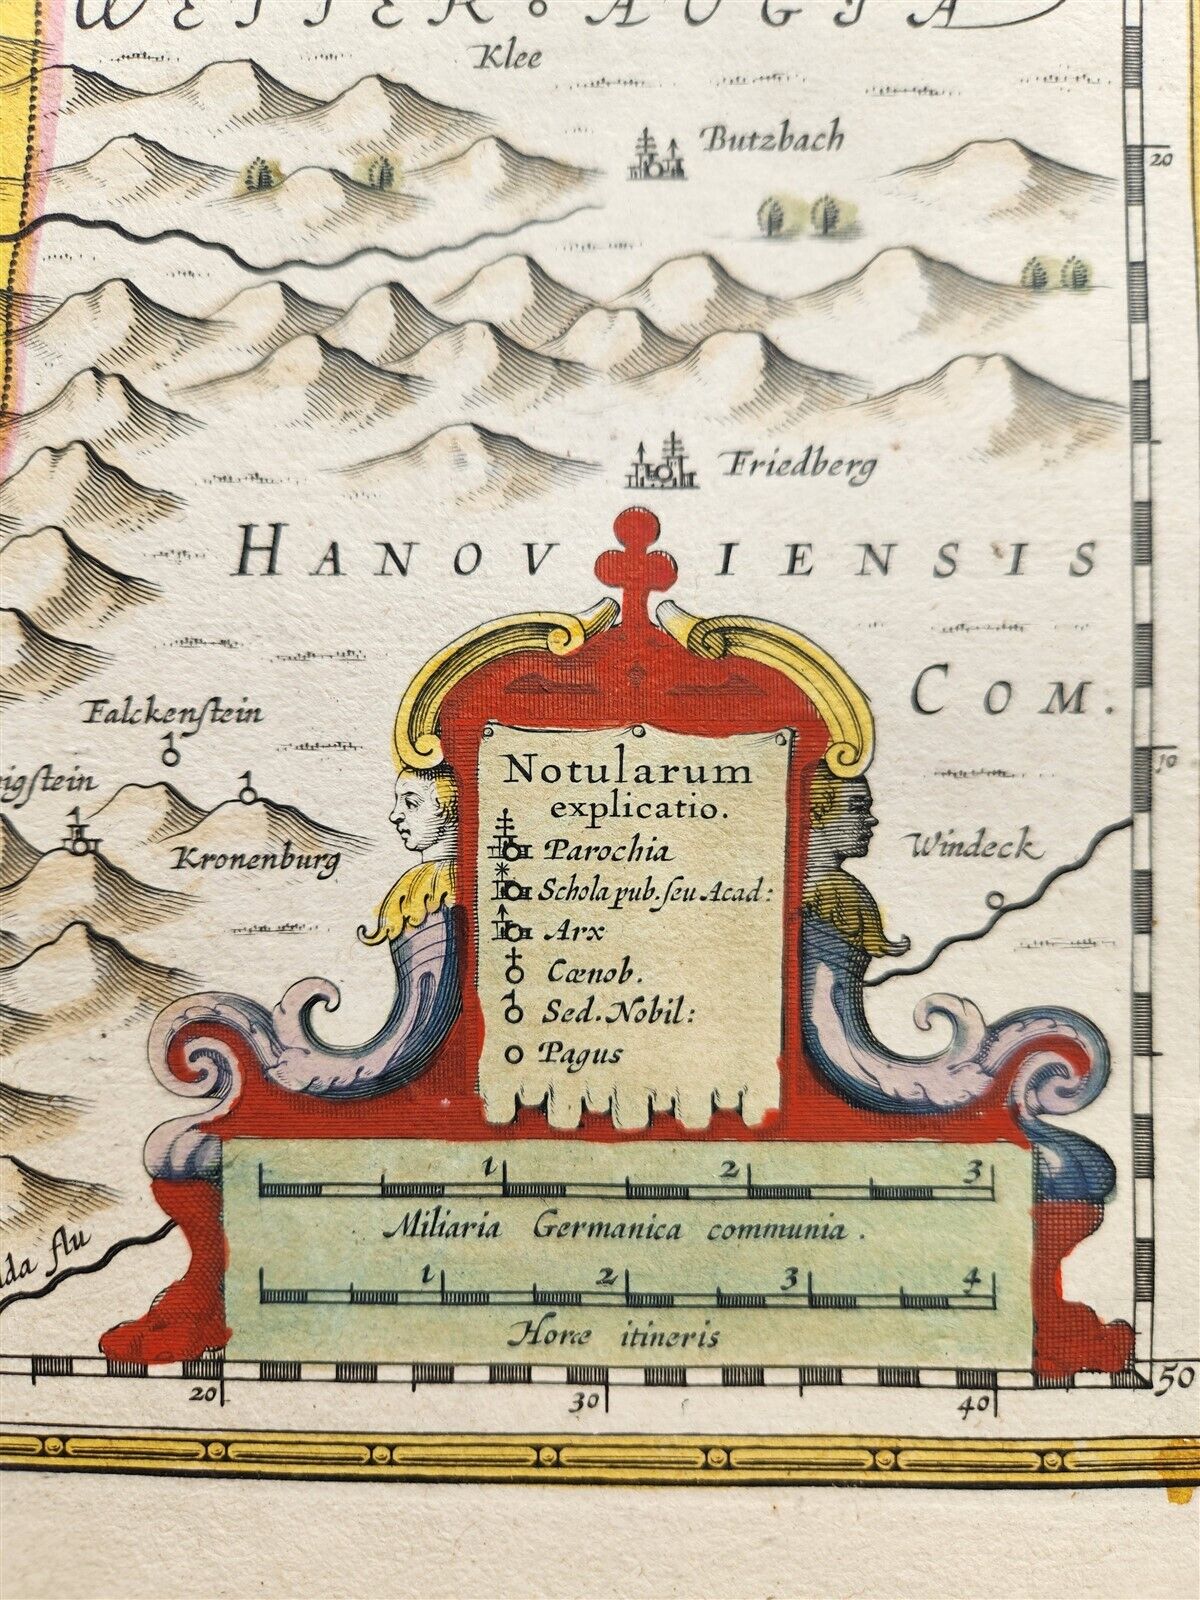 Klee
Butzbach
20
Friedberg
HANOVIENSIS
COM.
Falckenstein
10
Kronenburg
Windeck
Notularum
explicatio.
Parochia
Schola pub. ſeu Acad:
Arx
Cœnob.
Sed. Nobil:
Pagus
1 2 3
Miliaria Germanica communia.
flu
1 2 3 4
Horæ itineris
20 30 40 50